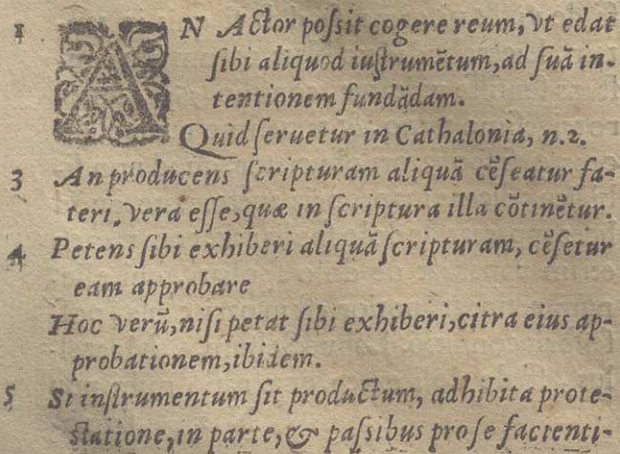 1 AN Actor possit cogere reum, vt edat
sibi aliquod iustrumētum, ad suā in-
tentionem fundādam.
Quid seruetur in Cathalonia, n.2.
3 An producens scripturam aliquā cēseatur fa-
teri, vera esse, quæ in scriptura illa cōtinētur.
4 Petens sibi exhiberi aliquā scripturam, cēsetur
eam approbare
Hoc verū, nisi petat sibi exhiberi, citra eius ap-
probationem, ibidem.
5 Si instrumentum sit productum, adhibita prote-
statione, in parte, & passibus pro se facienti-